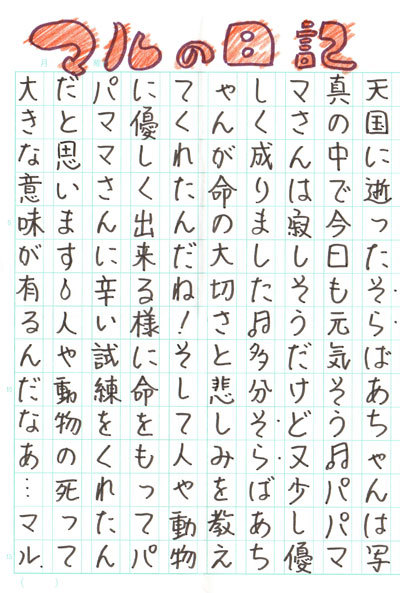 マルの日記
天国に逝ったそらばあちゃんは写
真の中で今日も元気そう♫パパマ
マさんは寂しそうだけど又少し優
しく成りました♫多分そらばあち
ゃんが命の大切さと悲しみを教え
てくれたんだね！そして人や動物
に優しく出来る様に命をもってパ
パママさんに辛い試練をくれたん
だと思います💧人や動物の死って
大きな意味が有るんだなあ…マル.